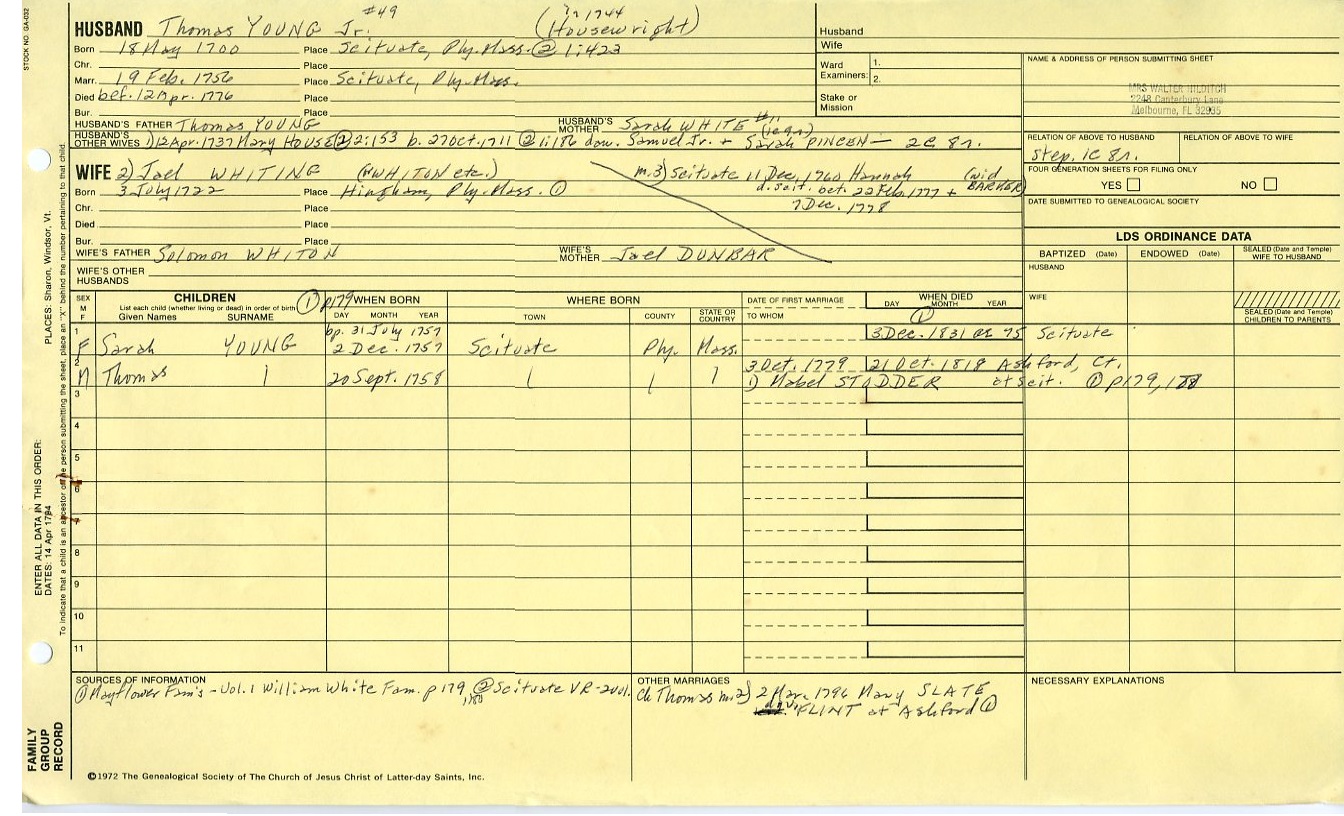 #49 in 1744
HUSBAND Thomas YOUNG Jr. (Housewright)
Born 18 May 1700 Place Scituate, Ply. Mass. ② 1:423
Chr. Place
Marr. 19 Feb. 1756 Place Scituate, Ply. Mass.
Died bef. 12 Apr. 1776 Place
Bur. Place
HUSBAND'S FATHER Thomas YOUNG HUSBAND'S MOTHER Sarah WHITE #11
HUSBAND'S OTHER WIVES 1) 12 Apr. 1737 Mary HOUSE ② 2:153 b. 27 Oct. 1711 ② 1:186 dau. Samuel Jr. + Sarah PINCEN — 2C 8r.
Husband
Wife
Ward Examiners: 1.
2.
Stake or Mission
NAME & ADDRESS OF PERSON SUBMITTING SHEET
MRS WALTER HILDITCH
2248 Canterbury Lane
Melbourne, FL 32935
RELATION OF ABOVE TO HUSBAND RELATION OF ABOVE TO WIFE
Step. 1C 8r.
FOUR GENERATION SHEETS FOR FILING ONLY
YES NO
DATE SUBMITTED TO GENEALOGICAL SOCIETY
WIFE 2) Jael WHITING (WHITON etc.) m. 3) Scituate 11 Dec. 1760 Hannah (wid BARKER)
Born 3 July 1722 Place Hingham, Ply. Mass. ① d. Scit. bet. 22 Feb. 1777 +
Chr. Place 7 Dec. 1778
Died Place
Bur. Place
WIFE'S FATHER Solomon WHITON WIFE'S MOTHER Jael DUNBAR
WIFE'S OTHER HUSBANDS
LDS ORDINANCE DATA
BAPTIZED (Date) ENDOWED (Date) SEALED (Date and Temple) WIFE TO HUSBAND
HUSBAND
WIFE
SEALED (Date and Temple) CHILDREN TO PARENTS
SEX M F CHILDREN ① p179 WHEN BORN WHERE BORN DATE OF FIRST MARRIAGE WHEN DIED ①
List each child (whether living or dead) in order of birth
Given Names SURNAME DAY MONTH YEAR TOWN COUNTY STATE OR COUNTRY TO WHOM DAY MONTH YEAR
1 bp. 31 July 1757 3 Dec. 1831 ae 75 Scituate
F Sarah YOUNG 2 Dec. 1757 Scituate Ply. Mass.
2 3 Oct. 1779 21 Oct. 1818 Ashford, Ct.
M Thomas 20 Sept. 1758 1) Mabel STODDER at Scit. ① p179, 188
3
4
5
6
7
8
9
10
11
SOURCES OF INFORMATION
① Mayflower Fam's - Vol. 1 William White Fam. p 179, 188 ② Scituate VR - 2 vol.
OTHER MARRIAGES
ch Thomas m. 2) 2 Mar. 1796 Mary SLATE
FLINT at Ashford ①
NECESSARY EXPLANATIONS
©1972 The Genealogical Society of The Church of Jesus Christ of Latter-day Saints, Inc.
STOCK NO. GA-032
ENTER ALL DATA IN THIS ORDER:
DATES: 14 Apr 1794
PLACES: Sharon, Windsor, Vt.
To indicate that a child is an ancestor of the person submitting the sheet, place an "X" behind the number pertaining to that child.
FAMILY GROUP RECORD